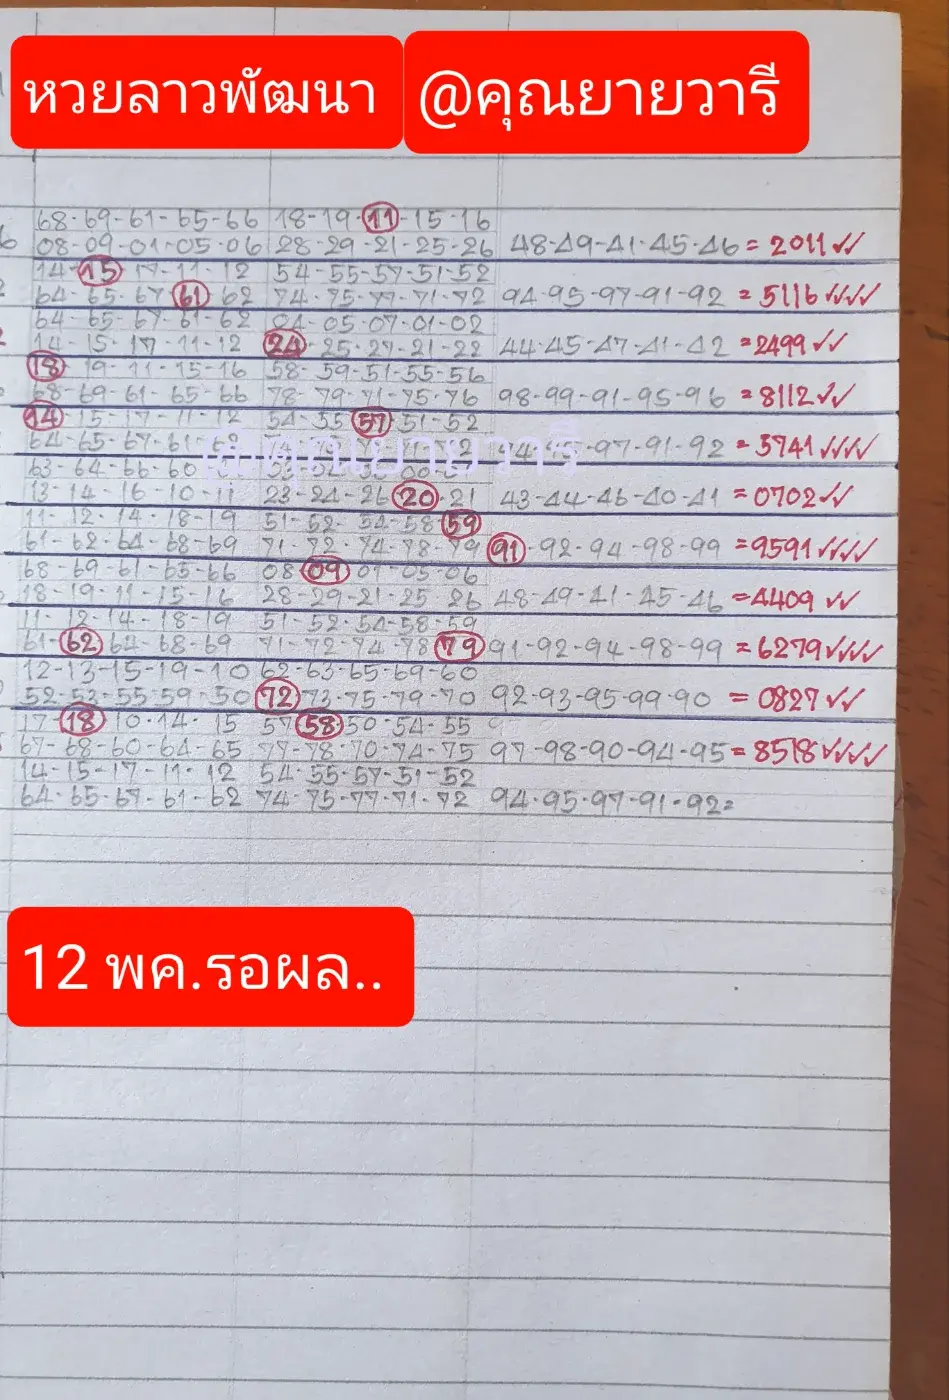 หวยลาวพัฒนา @คุณยายวารี
68-69-61-65-66 18-19-11-15-16
08-09-01-05-06 28-29-21-25-26 48-49-41-45-46 = 2011 ✓✓
14-15-17-11-12 54-55-57-51-52
64-65-67-61-62 74-75-77-71-72 94-95-97-91-92 = 5116 ✓✓✓✓
64-65-67-61-62 04-05-07-01-02
14-15-17-11-12 24-25-27-21-22 44-45-47-41-42 = 2499 ✓✓
18-19-11-15-16 58-59-51-55-56
68-69-61-65-66 78-79-71-75-76 98-99-91-95-96 = 8112 ✓✓
14-15-17-11-12 54-55-57-51-52
64-65-67-61-62 97-91-92 = 5741 ✓✓✓✓
@คุณยายวารี
63-64-66-60
13-14-16-10-11 23-24-26-20-21 43-44-46-40-41 = 0702 ✓✓
11-12-14-18-19 51-52-54-58-59
61-62-64-68-69 71-72-74-78-79 91-92-94-98-99 = 9591 ✓✓✓✓
68-69-61-65-66 08-09-01-05-06
18-19-11-15-16 28-29-21-25-26 48-49-41-45-46 = 4409 ✓✓
11-12-14-18-19 51-52-54-58-59
61-62-64-68-69 71-72-74-78-79 91-92-94-98-99 = 6279 ✓✓✓✓
12-13-15-19-10 62-63-65-69-60
52-53-55-59-50 72-73-75-79-70 92-93-95-99-90 = 0827 ✓✓
17-18-10-14-15 57-58-50-54-55
67-68-60-64-65 77-78-70-74-75 97-98-90-94-95 = 8518 ✓✓✓✓
14-15-17-11-12 54-55-57-51-52
64-65-67-61-62 74-75-77-71-72 94-95-97-91-92=
12 พค.รอผล..